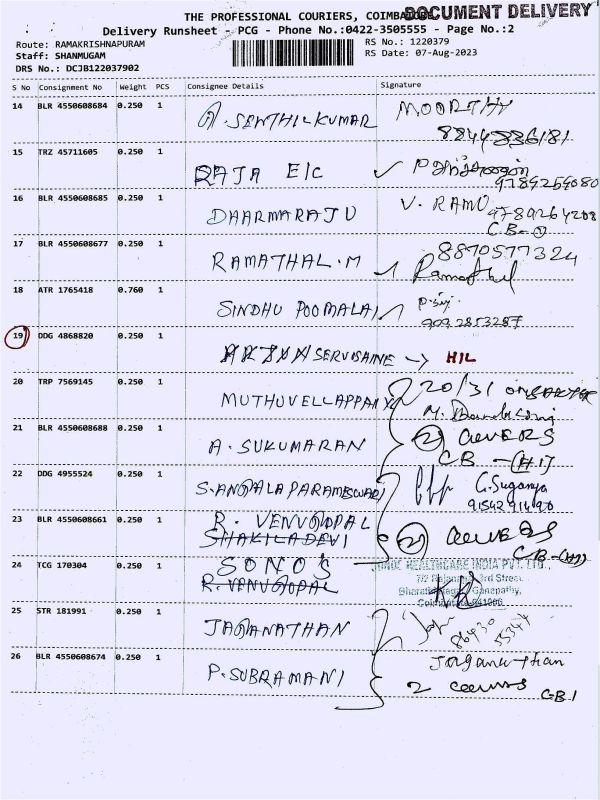 DOCUMENT DELIVERY
THE PROFESSIONAL COURIERS, COIMBATORE
Delivery Runsheet - PCG - Phone No.:0422-3505555 - Page No.:2
Route: RAMAKRISHNAPURAM RS No.: 1220379
Staff: SHANMUGAM RS Date: 07-Aug-2023
DRS No.: DCJB122037902
S No Consignment No Weight PCS Consignee Details Signature
14 BLR 4550608684 0.250 1 A. SENTHILKUMAR MOORTHY
8844836181
15 TRZ 45711605 0.250 1 RAJA E/C
9789259080
16 BLR 4550608685 0.250 1 DHARMARAJU V. RAMU
9789264208
17 BLR 4550608677 0.250 1 RAMATHAL.M 8870577324
Ramathal
18 ATR 1765418 0.760 1 SINDHU POOMALAI
909 2853287
19 DDG 4868820 0.250 1 SERVISAINE → HIL
20 TRP 7569145 0.250 1 MUTHUVELLAPPAN 20/31
21 BLR 4550608688 0.250 1 A. SUKUMARAN 2 COVERS
CB - (H.I)
22 DDG 4955524 0.250 1 S. ANGALAPARAMESWARI G. Suganya
23 BLR 4550608661 0.250 1 R. VENUGOPAL
SHAKILADEVI 2 COVERS
24 TCG 170304 0.250 1 SONO'S HEALTHCARE INDIA PVT. LTD.,
R. VENUGOPAL 3rd Street,
Ganapathy,
Coimbatore-641006
25 STR 181991 0.250 1 JAGANATHAN 86430
55344
26 BLR 4550608674 0.250 1 P. SUBRAMANI
2 covers CB.1